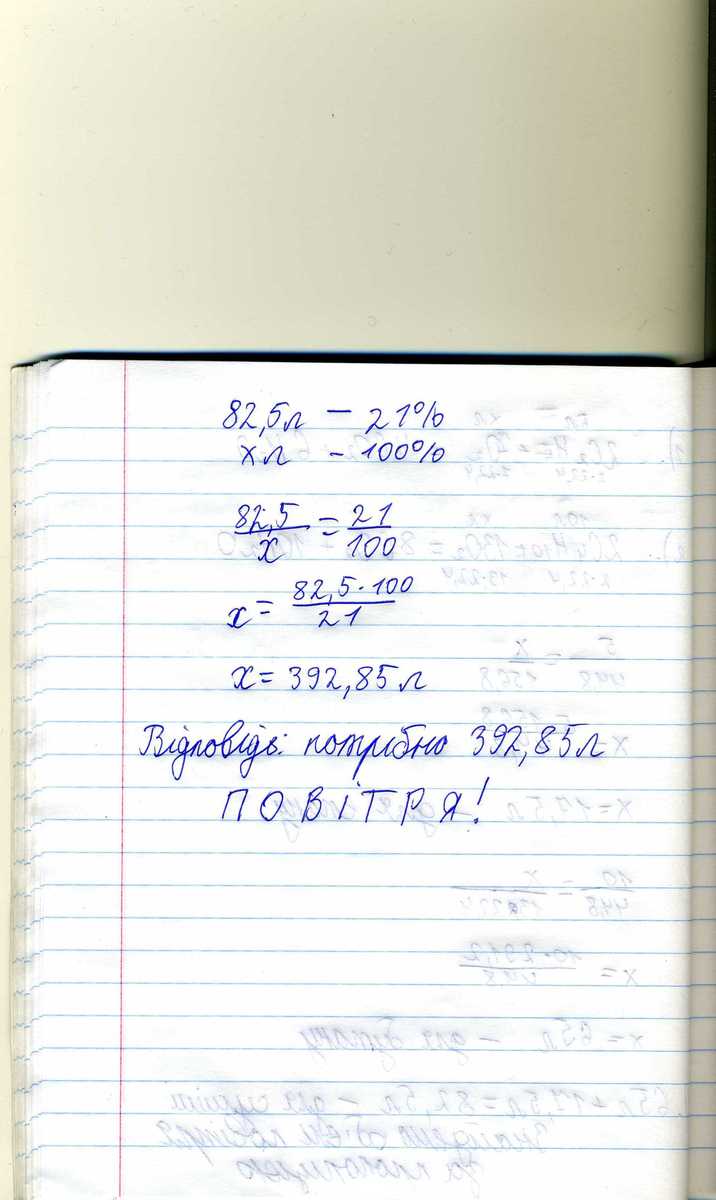 82,5л – 21%
хл – 100%
82,5/х = 21/100
х = 82,5·100/21
х = 392,85л
Відповідь: потрібно 392,85л
ПОВІТРЯ!